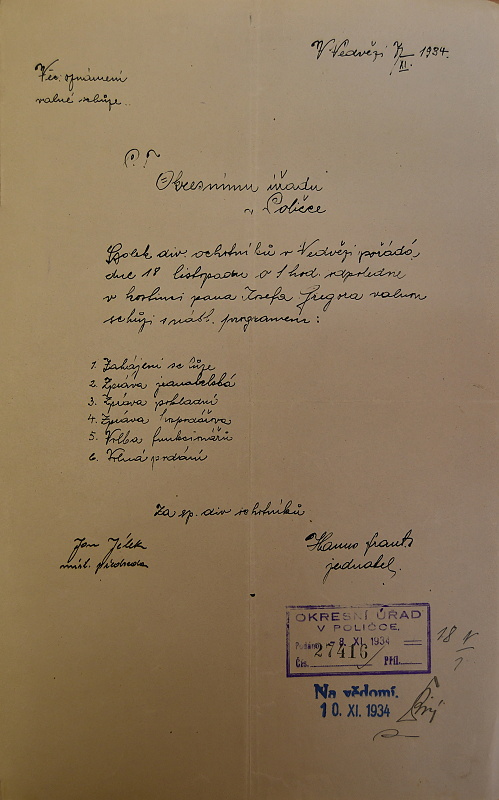 V Vedvězí 7/XI. 1934.
Věc: oznámení
valné schůze.
P. T.
Okresnímu úřadu
v Poličce
Spolek div. ochotníků v Vedvězí pořádá,
dne 18 listopadu o 1 hod. odpoledne
v hostinci pana Josefa Gregora valnou
schůzi s násl. programem:
1. Zahájení schůze
2. Zpráva jednatelská
3. Zpráva pokladní
4. Zpráva hospodářova
5. Volba funkcionářů
6. Volná podání
Za sp. div ochotníků
Jan Jílek
míst. předseda
Hanus Frant.
jednatel.
OKRESNÍ ÚŘAD
V POLIČCE.
Podáno 8. XI. 1934
Čís. 27416 Příl.
18
Na vědomí.
10. XI. 1934